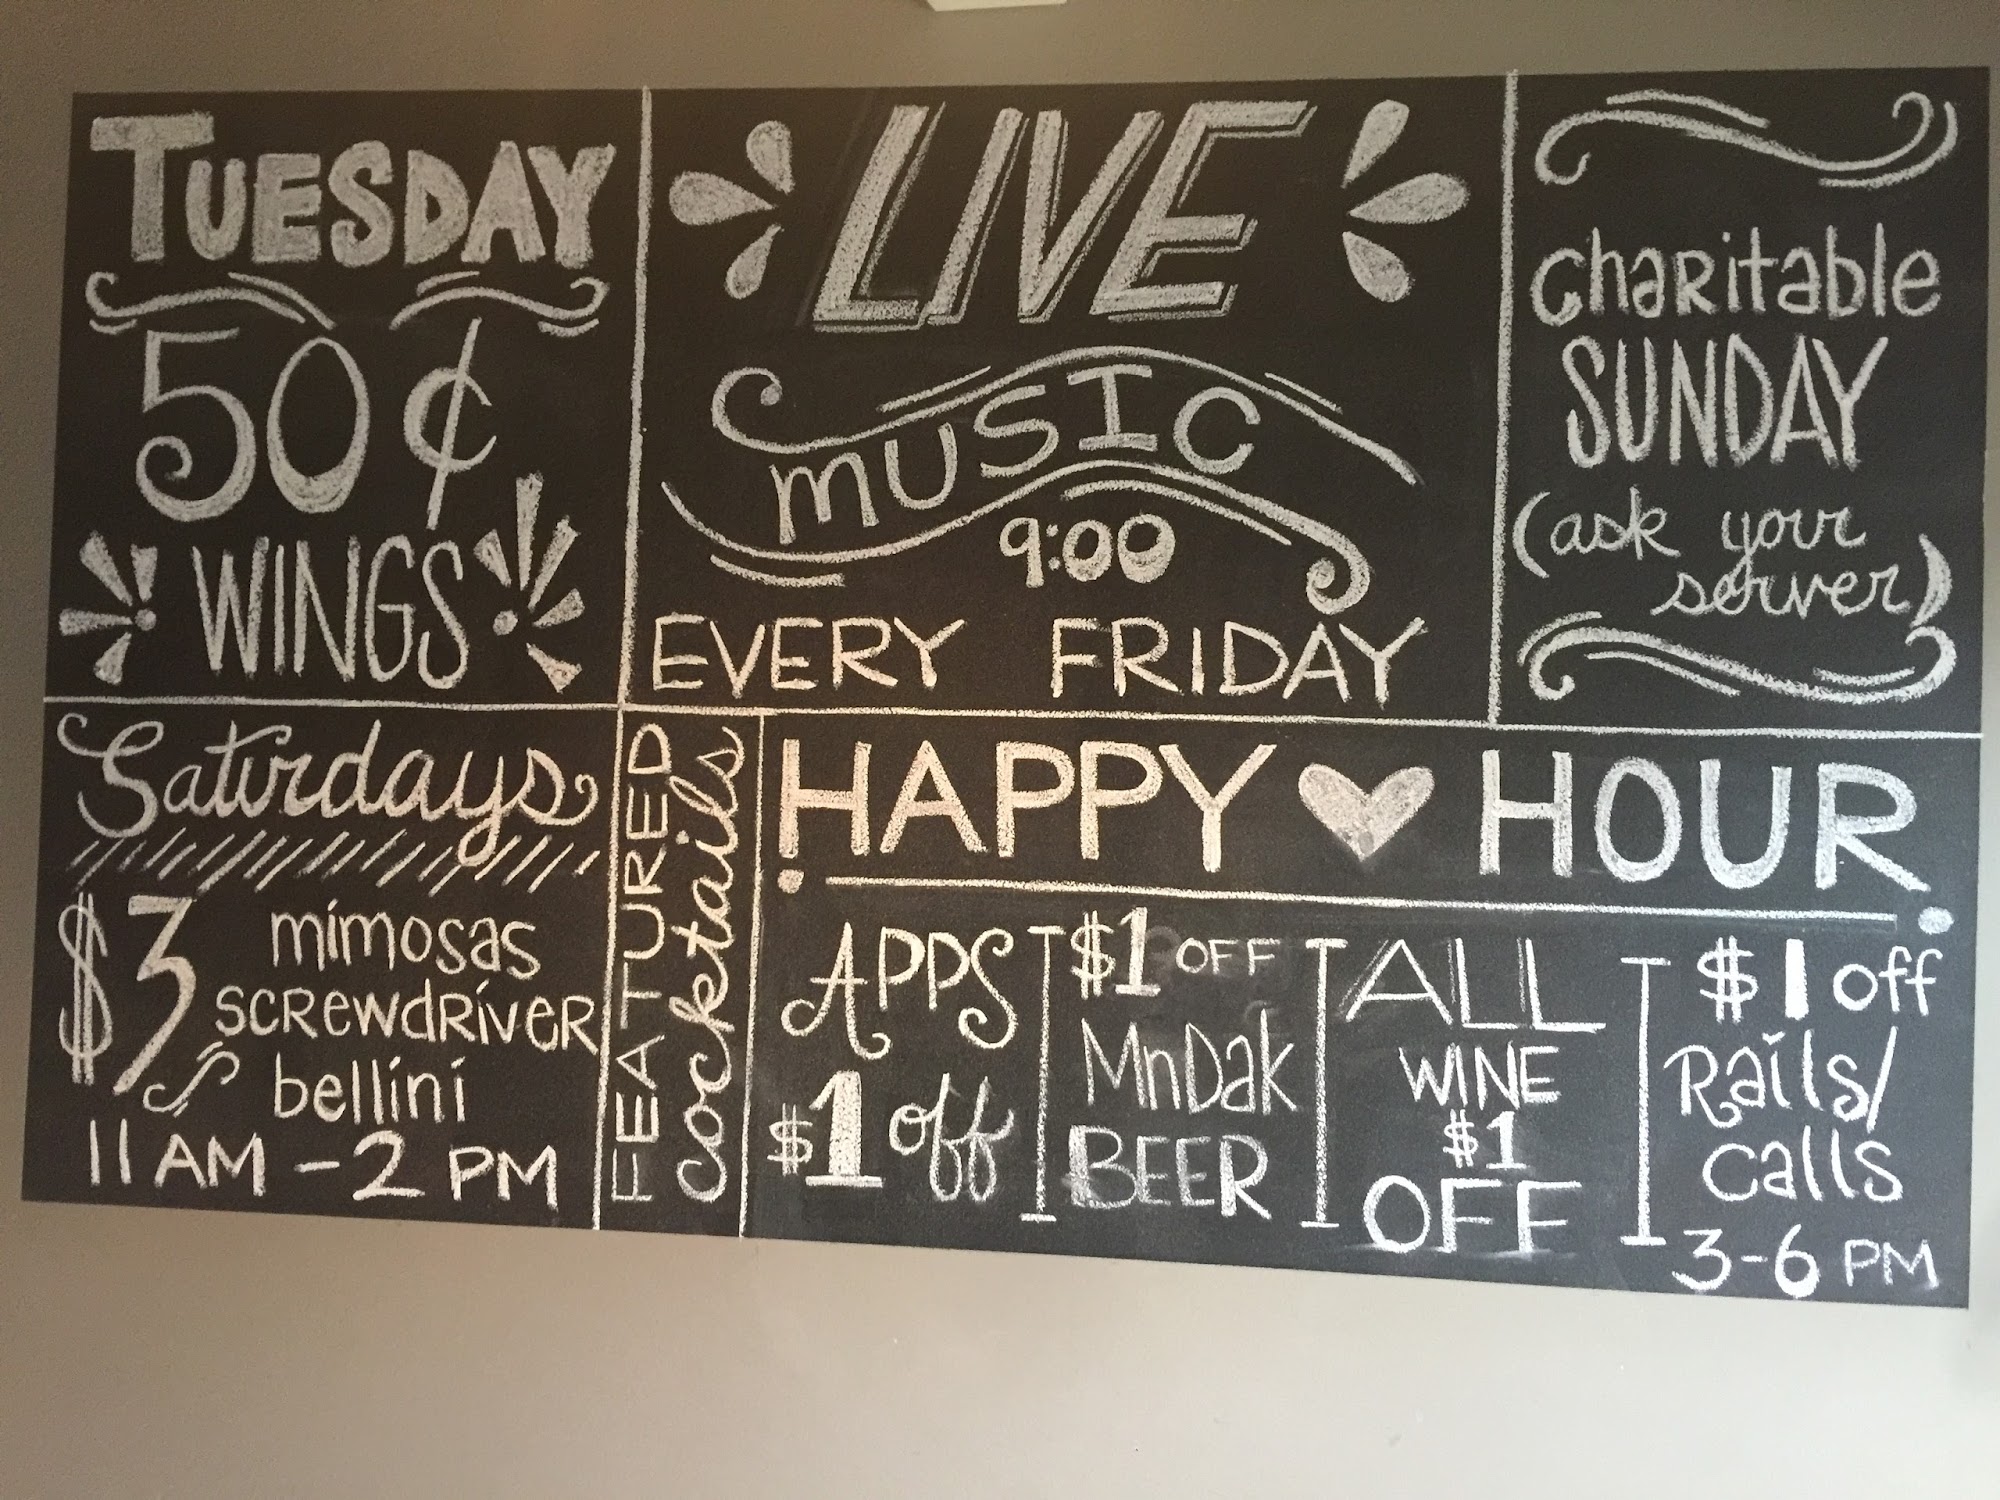 TUESDAY
50¢
WINGS
LIVE
MUSIC
9:00
EVERY FRIDAY
charitable
SUNDAY
(ask your
server)
Saturdays
$3 mimosas
screwdriver
bellini
11 AM - 2 PM
FEATURED
cocktails
HAPPY HOUR
APPS
$1 off
$1 OFF
MnDak
BEER
ALL
WINE
$1
OFF
$1 off
Rails/
Calls
3-6 PM